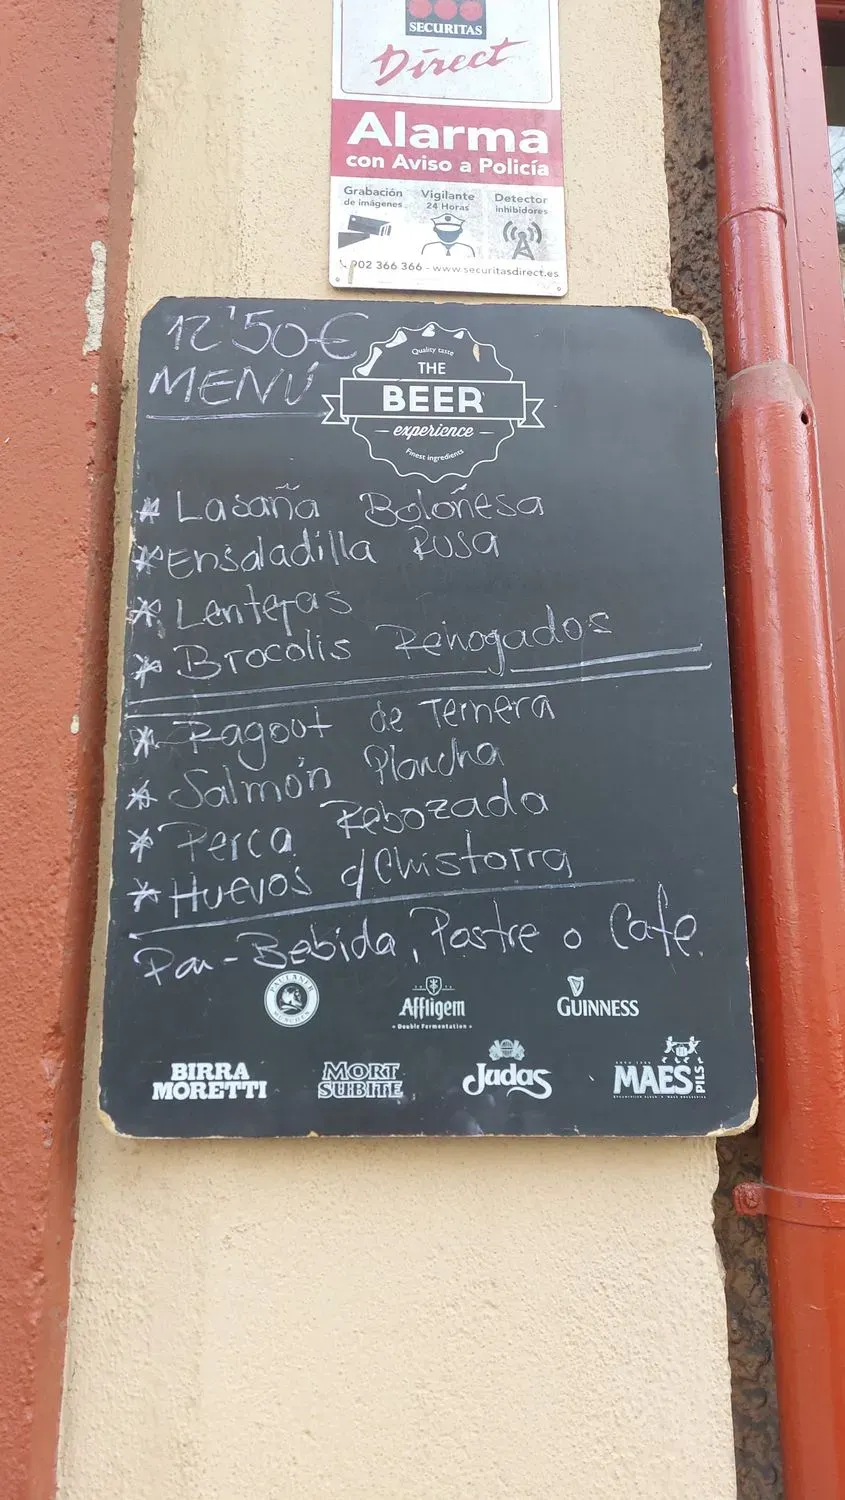 SECURITAS
Direct
Alarma
con Aviso a Policía
Grabación de imágenes
Vigilante 24 Horas
Detector inhibidores
902 366 366 - www.securitasdirect.es
12'50€
MENÚ
Quality taste
THE
BEER
experience
Finest ingredients
* Lasaña Boloñesa
* Ensaladilla Rusa
* Lentejas
* Brocolis Rehogados
* Ragout de Ternera
* Salmón Plancha
* Perca Rebozada
* Huevos c/Chistorra
Pan-Bebida, Postre o Cafe.
PAULANER MÜNCHEN
Affligem
Double Fermentation
GUINNESS
BIRRA MORETTI
MORT SUBITE
Judas
MAES PILS